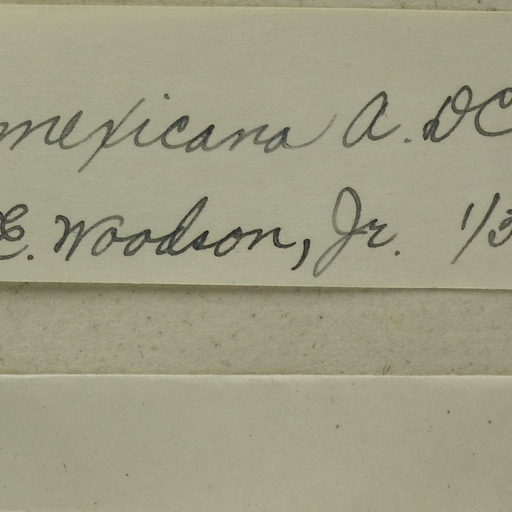 mexicana A. DC
E. Woodson, Jr. 1/3